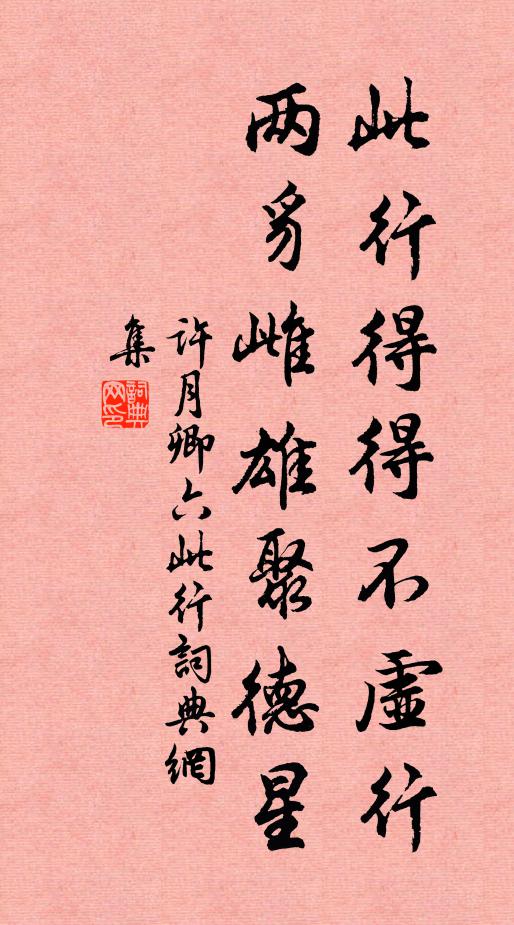 此行得得不虛行
两豸雌雄聚德星
许月卿六此行詞典網
集
詞典網印